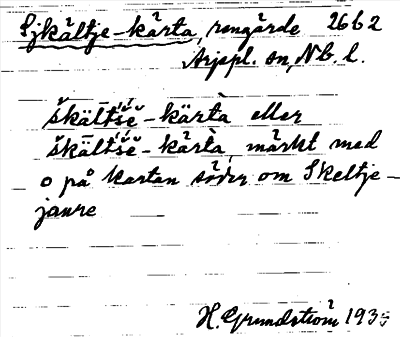 Sjkältje-kärta, rengärde 2662
Arjepl. sn, Nb. l.
škāĺt́šĕ-kärtà eller
škāĺt́šĕ-kärtà, märkt med
o på kartan söder om Skeltje-
jaure
H. Grundström 1935